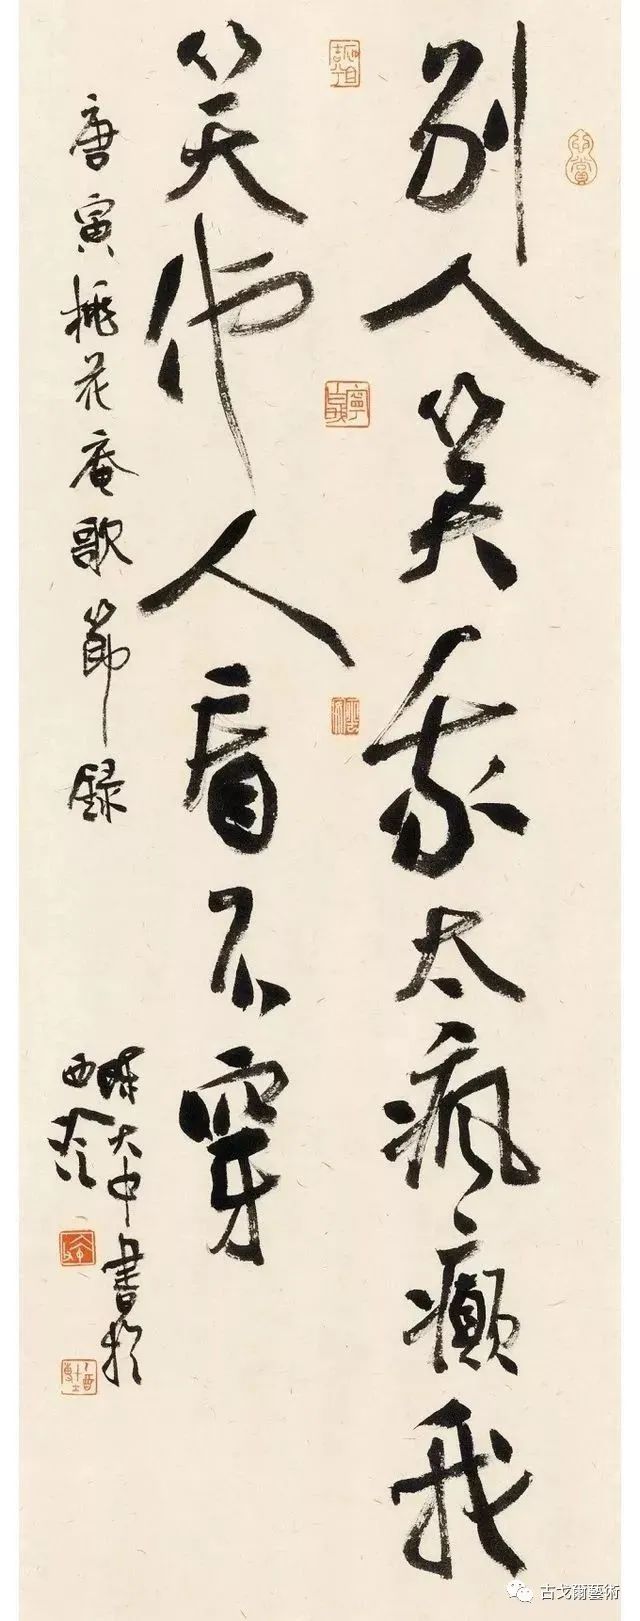 别人笑我太瘋癲我
笑他人看不穿
唐寅桃花庵歌節録
陳大中書於
西泠
古戈爾藝術